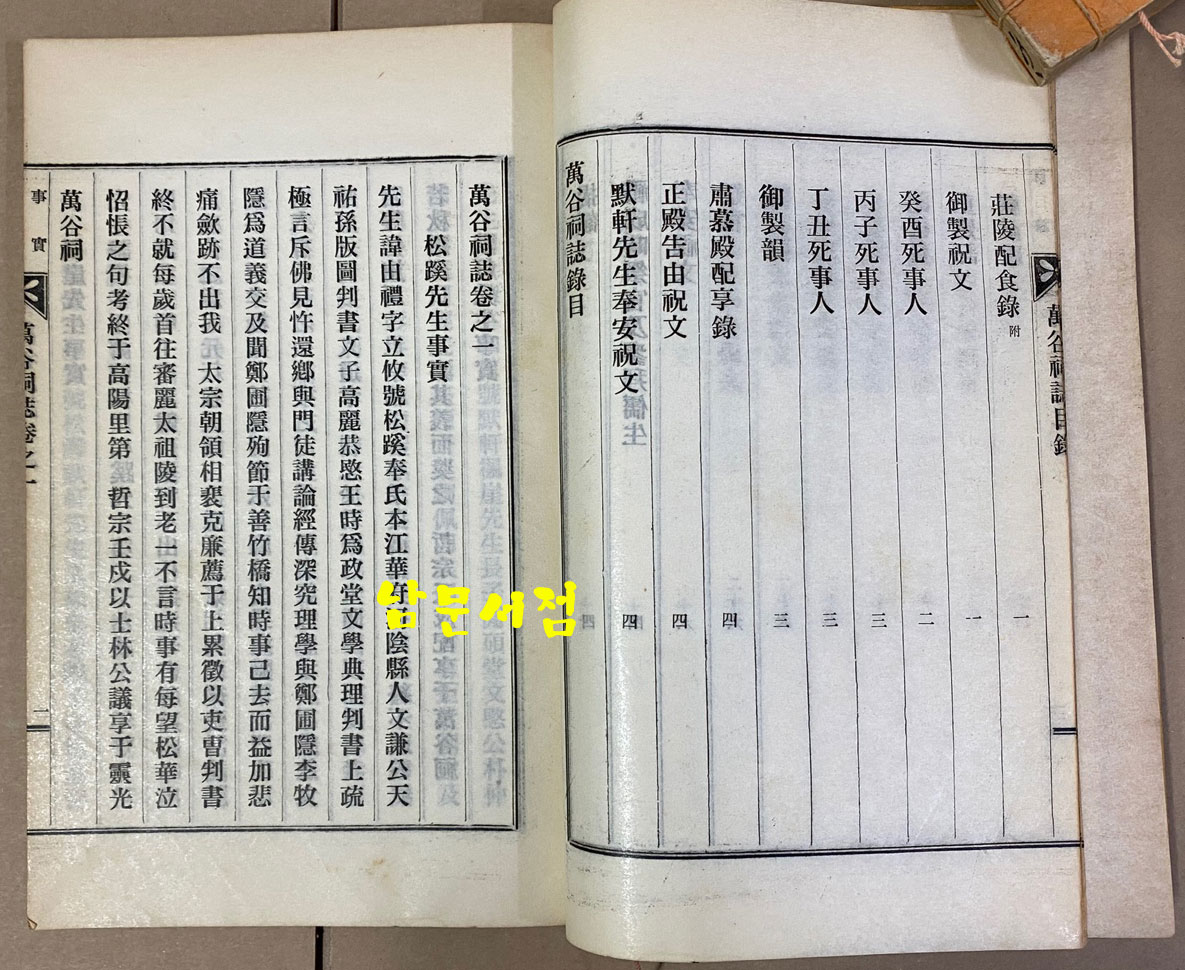 萬谷祠誌目錄
莊陵配食錄 附 一
御製祝文 一
癸酉死事人 二
丙子死事人 三
丁丑死事人 三
御製韻 三
肅慕殿配享錄 四
正殿告由祝文 四
默軒先生奉安祝文 四
萬谷祠誌錄目
萬谷祠誌卷之一
松蹊先生事實
先生諱由禮字立攸號松蹊奉氏本江華府 陰縣人文謙公天
祐孫版圖判書文子高麗恭愍王時爲政堂文學典理判書上疏
極言斥佛見忤還鄕與門徒講論經傳深究理學與鄭圃隱李牧
隱爲道義交及聞鄭圃隱殉節于善竹橋知時事己去而益加悲
痛歛跡不出我 太宗朝領相裵克廉薦于上累徵以吏曹判書
終不就每歲首往審麗太祖陵到老一不言時事有每望松華泣
怊悵之句考終于高陽里第 哲宗壬戌以士林公議享于靈光
萬谷祠
事實
萬谷祠誌卷之一
二
남문서점